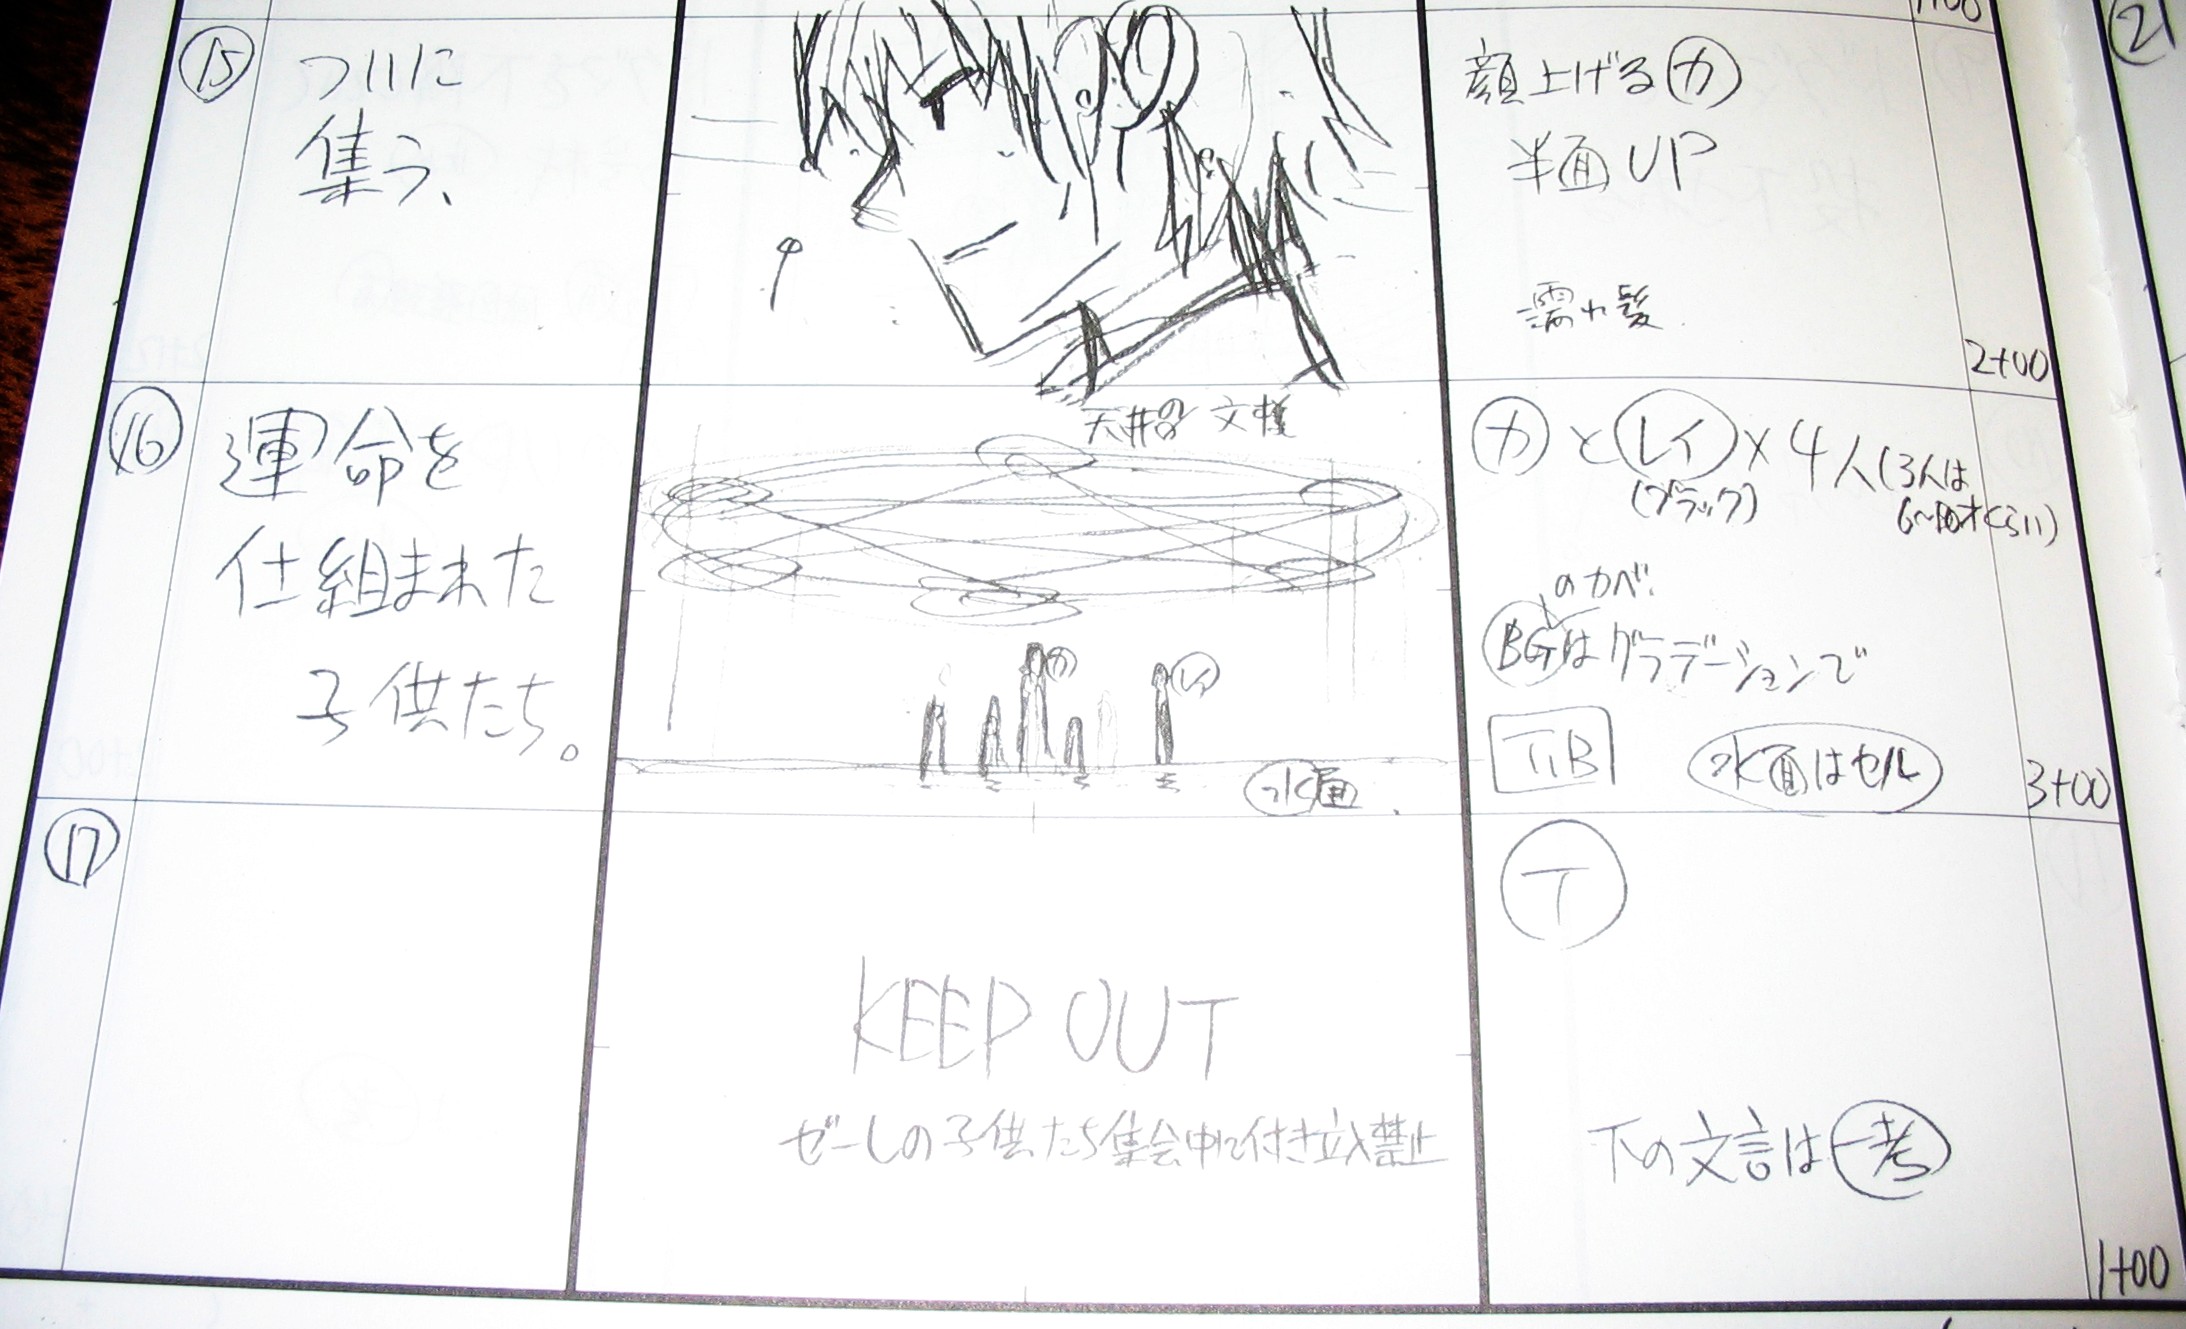 1+00
②
⑮
ついに
集う、
顔上げる㋕
半面UP
濡れ髪
2+00
⑯
運命を
仕組まれた
子供たち。
天井の文様
カ
レイ
水面
カとレイ×4人(3人は
(ブラック)
6〜10才くらい)
のカベ
BGはグラデーションで
T.B
水面はセル
3+00
⑰
KEEP OUT
ゼーレの子供たち集会中に付き立入禁止
T
下の文言は一考
1+00